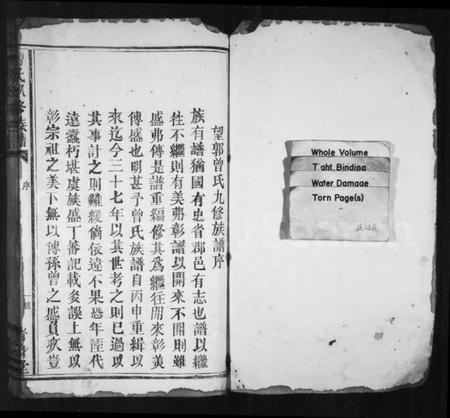 望郭曾氏九修族譜序
族有譜猶國有史省郡邑有志也譜以繼
往不繼則有美弗彰譜以開來不開則雖
盛弗傳是譜重編修其爲繼往開來彰美
傳盛也明甚予曾氏族譜自丙申重緝以
來迄今三十七年以其世考之則已過以
其事計之則難緩倘依違不果恐年湮代
遠蠹朽堪虞族盛丁蕃記載多誤上無以
彰宗祖之美下無以傳孫曾之盛員歉豈
序
Whole Volume
Tight Binding
Water Damage
Torn Page(s)